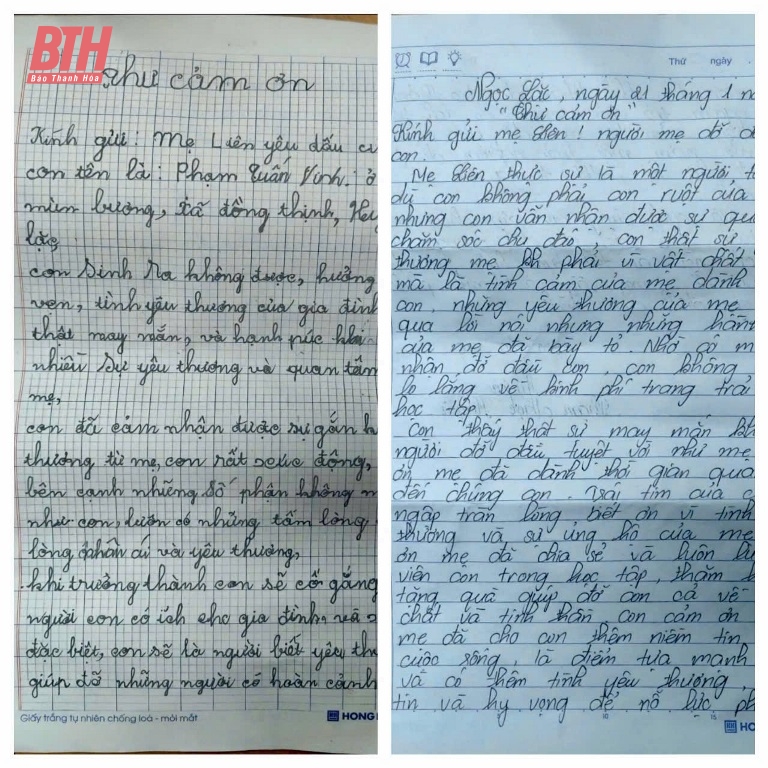 BTH
Báo Thanh Hóa
Thư cảm ơn
Kính gửi: Mẹ Liên yêu dấu củ
con tên là: Phạm Tuấn Vinh. ở
mùn bương, xã đồng thịnh, Huy
lặc,
con Sinh ra không được, hưởng
vẹn, tình yêu thương của gia đình
thật may mắn, và hạnh púc khi
nhiều sự yêu thương và quan tâm
mẹ,
con đã cảm nhận được sự gắn b
thương từ mẹ, con rất xúc động,
bên cạnh những số phận không m
như con, luôn có những tấm lòng
lòng nhân ái và yêu thương,
khi trưởng thành con sẽ cố gắng
người con có ích cho gia đình, và
đặc biệt, con sẽ là người biết yêu th
giúp đỡ những người có hoàn cảnh
Giấy trắng tự nhiên chống loá - mỏi mắt
HONG
Thứ ngày
Ngọc Lặc, ngày 21 tháng 1 nă
"Thư cảm ơn"
Kính gửi mẹ Liên! người mẹ đỡ đ
con.
Mẹ Liên thực sự là một người t
dù con không phải con ruột của
nhưng con vẫn nhận được sự qua
chăm sóc chu đáo, con thật sự
thương mẹ kh phải vì vật chất
mà là tình cảm của mẹ dành
con, những yêu thương của mẹ
qua lời nói nhưng những hành
của mẹ đã bày tỏ. Nhờ có m
nhận đỡ đầu con, con không
lo lắng về kinh phí trang trải
học tập.
Con thấy thật sự may mắn kh
người đỡ đầu tuyệt vời như mẹ
ơn mẹ đã dành thời gian qua
đến chúng con. Trái tim của c
ngập tràn lòng biết ơn vì tình
thương và sự ủng hộ của mẹ
ơn mẹ đã chia sẻ và luôn
viên con trong học tập, thăm
tặng quà giúp đỡ con cả về
chất và tinh thần con cảm ơn
mẹ đã cho con thêm niềm tin
cuộc sống, là điểm tựa mạnh
và có thêm tình yêu thương,
tin và hy vọng để nỗ lực ph
HO